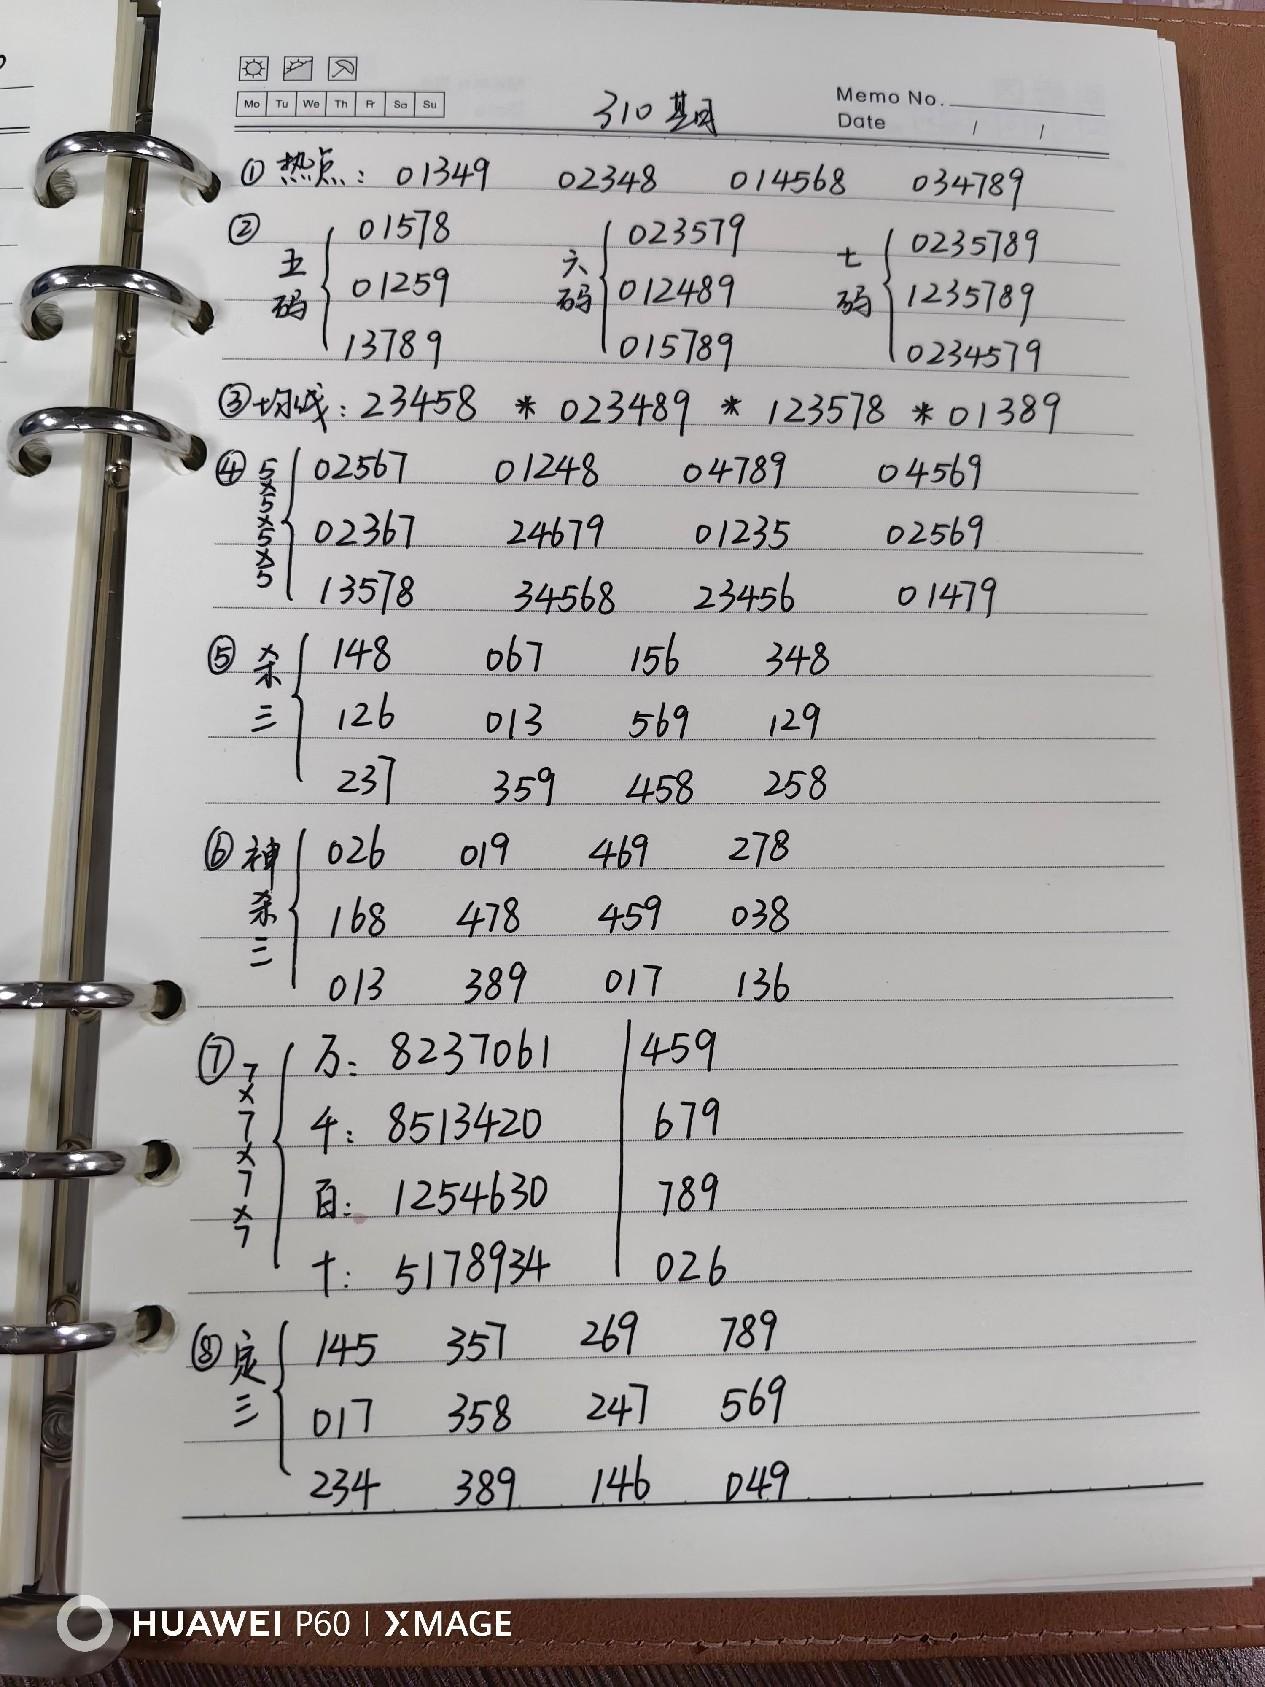 Mo Tu We Th Fr Sa Su
310基因
Memo No.
Date / /
①热点: 01349 02348 014568 034789
②五码 01578 六码 023579 七码 0235789
01259 012489 1235789
13789 015789 0234579
③均线: 23458 * 023489 * 123578 * 01389
④5×5×5×5 02567 01248 04789 04569
02367 24679 01235 02569
13578 34568 23456 01479
⑤杀三 148 067 156 348
126 013 569 129
237 359 458 258
⑥神杀三 026 019 469 278
168 478 459 038
013 389 017 136
⑦7×7×7×7 万: 8237061 459
千: 8513420 679
百: 1254630 789
十: 5178934 026
⑧定三 145 357 269 789
017 358 247 569
234 389 146 049
HUAWEI P60 | XMAGE